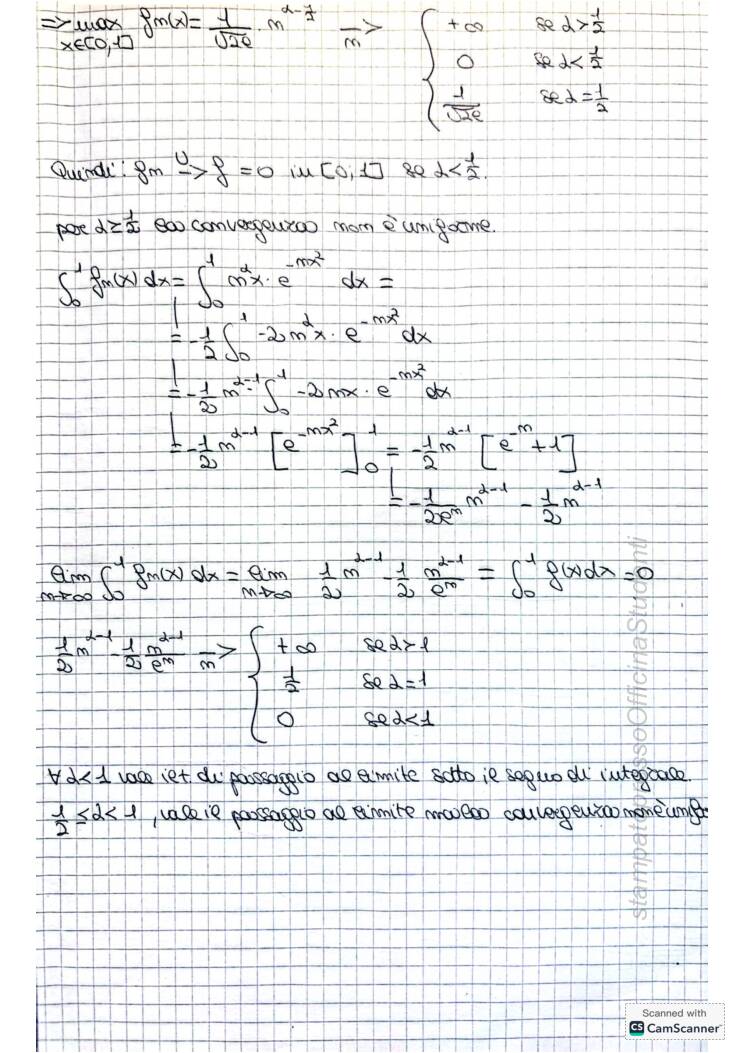 => max fn(x) = 1/√2e · n^(α-1/2) →n { +∞ se α > 1/2
x∈[0,1] 0 se α < 1/2
1/√2e se α = 1/2
Quindi: fn -U-> f = 0 in [0,1] se α < 1/2.
per α ≥ 1/2 la convergenza non è uniforme.
∫₀¹ fn(x) dx = ∫₀¹ n^α x · e^(-nx²) dx =
= -1/2 ∫₀¹ -2n^α x · e^(-nx²) dx
= -1/2 n^(α-1) ∫₀¹ -2nx · e^(-nx²) dx
= -1/2 n^(α-1) [e^(-nx²)]₀¹ = -1/2 n^(α-1) [e^(-n) + 1]
= -1/(2e^n) n^(α-1) - 1/2 n^(α-1)
lim n→∞ ∫₀¹ fn(x) dx = lim n→∞ 1/2 n^(α-1) - 1/2 n^(α-1)/e^n = ∫₀¹ f(x) dx = 0
1/2 n^(α-1) - 1/2 n^(α-1)/e^n →n { +∞ se α > 1
1/2 se α = 1
0 se α < 1
∀ α < 1 vale il t. di passaggio al limite sotto il segno di integrale.
1/2 ≤ α < 1, vale il passaggio al limite ma la convergenza non è
stampatopressoOfficinaStudenti
Scanned with
CS CamScanner